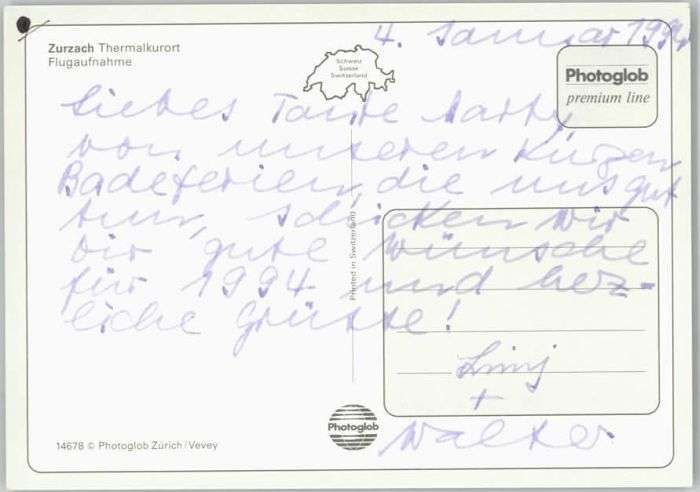 Zurzach Thermalkurort
Flugaufnahme
Schweiz
Suisse
Switzerland
4. Januar 1994
Photoglob
premium line
Liebes Tante
von unseren kurzen
Badeferien, die uns gut
tun, schicken wir
Dir gute Wünsche
für 1994 und herz-
liche Grüsse!
+
Walter
Printed in Switzerland
Photoglob
14678 © Photoglob Zürich/Vevey